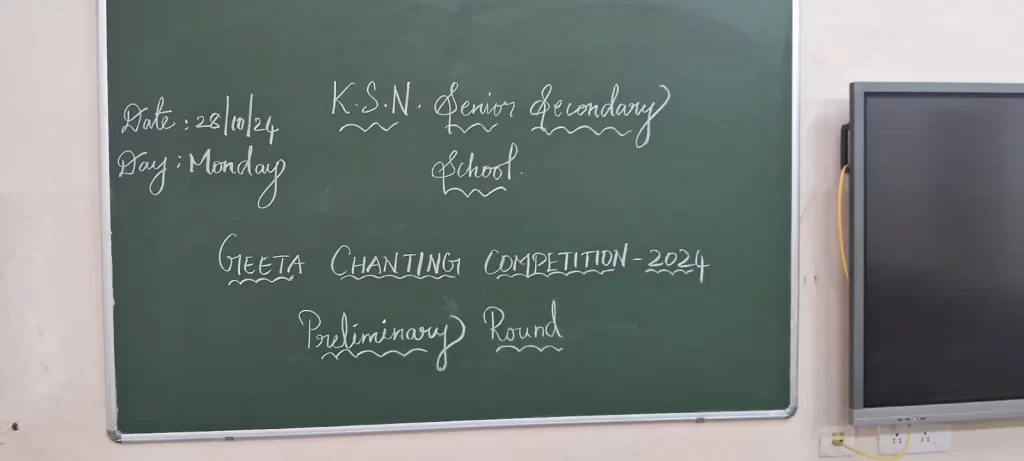 Date : 28/10/24
Day : Monday
K.S.N. Senior Secondary
School.
GEETA CHANTING COMPETITION - 2024
Preliminary Round